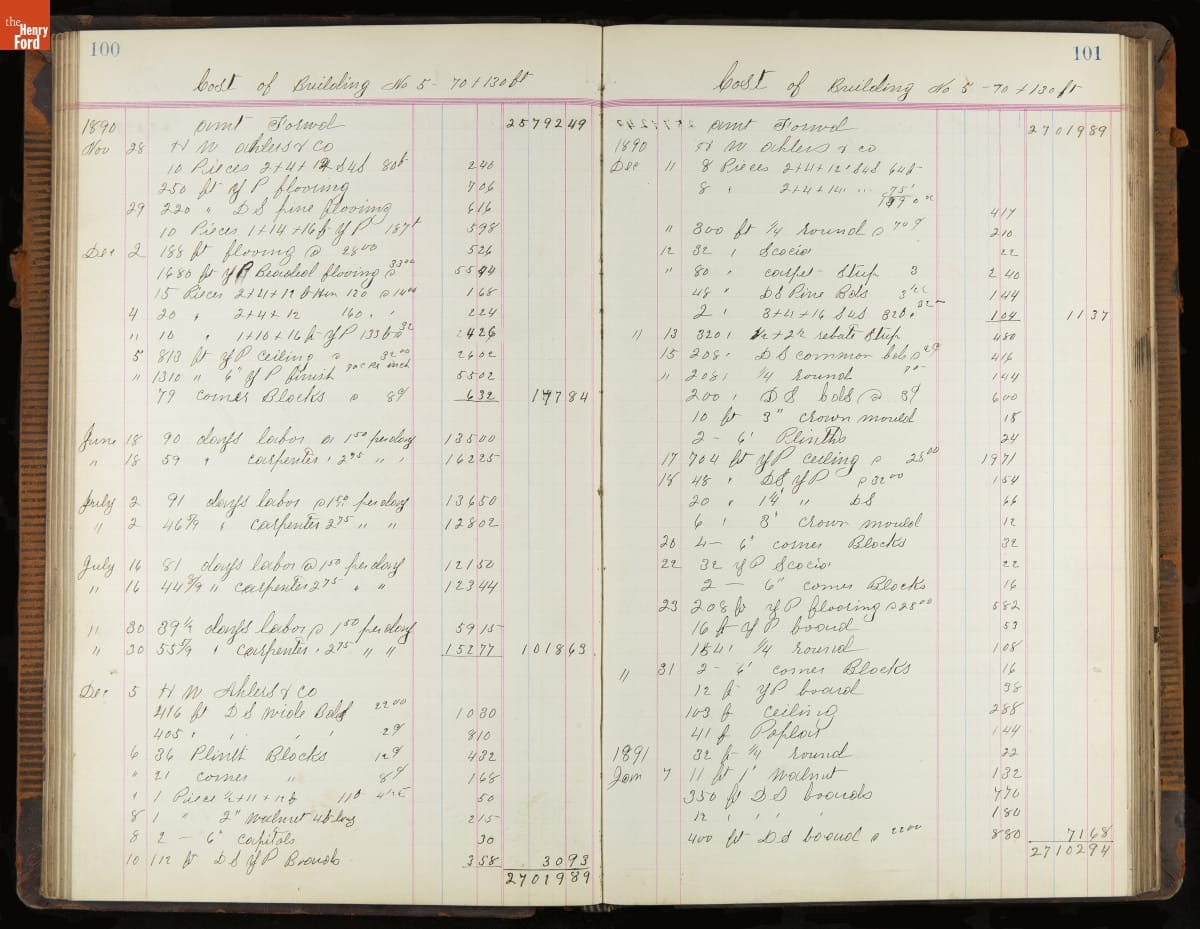 the Henry Ford
100
Cost of Building No 5 - 70 + 130 ft
1890 Amt Forwd 2579249
Nov 28 H W Ahlers & Co
10 Pieces 2+4+12 S4S 80ft 240
250 ft YP flooring 706
29 220 " D S pine flooring 616
10 Pieces 1+14+16ft YP 187ft 598
Dec 2 188 ft flooring @ 2800 526
1680 ft YP Beaded flooring @ 3300 5544
15 Pieces 2+4+12 120 @ 1400 168
4 20 " 2+4+12 160 " " 224
" 10 " 1+10+16 ft YP 133ft 32 426
5 813 ft YP Ceiling @ 3200 2602
" 1310 " 6" YP finish inch 5502
79 Corner Blocks @ 8¢ 632 17784
June 18 90 days labor @ 150 per day 13500
" 18 59 " Carpenter " 275 " " 16225
July 2 91 days labor @ 150 per day 13650
" 2 46 5/9 " Carpenter 275 " " 12802
July 16 81 days labor @ 150 per day 12150
" 16 44 8/9 " Carpenter 275 " " 12344
" 30 39 1/2 days labor @ 150 per day 5915
" 30 55 5/9 " Carpenter " 275 " " 15277 101863
Dec 5 H W Ahlers & Co
416 ft D S wide Bds 2200 1080
405 " " " " 2¢ 810
6 36 Plinth Blocks 12¢ 432
" 21 corner " 8¢ 168
" 1 Piece 50
8 1 " 2" Walnut 4ft long 215
8 2 - 6" Capitals 30
10 112 ft D S YP Boards 358 3093
2701989
101
Cost of Building No 5 - 70 + 130 ft
Amt Forwd 2701989
1890 H W Ahlers & Co
Dec 11 8 Pieces 2+4+12' S4S 64ft
8 " 2+4+14' " " 75'
417
" 300 ft 1/4 round @ 70¢ 210
12 32 " Scocia 22
" 80 " carpet Strip 3 240
48 " DS Pine Bds 144
2 " 3+4+16 S4S 320 " 104 1137
" 13 320 " 1/2+2 1/2 rebate Strip 480
15 208 " D S common bds @ 2¢ 416
" 208 " 1/4 round 144
200 " D S bds @ 3¢ 600
10 ft 3" crown mould 18
2 - 6' Plinths 24
17 704 ft YP ceiling @ 2800 1971
18 48 " DS YP @ 3200 154
20 " 1 1/4' " DS 66
6 " 3' crown mould 12
20 4 - 6' corner Blocks 32
22 32 YP Scocia 22
2 - 6" corner Blocks 16
23 208 ft YP flooring @ 2800 582
16 ft YP board 53
154 " 1/4 round 108
" 31 2 - 6' corner Blocks 16
12 ft YP board 98
103 ft ceiling 288
41 f Poplar 144
1891 32 ft 1/4 round 22
Jan 7 11 ft 1" Walnut 132
350 ft D S boards 770
12 " " " " 180
400 ft D S board @ 2200 880 7168
2710294